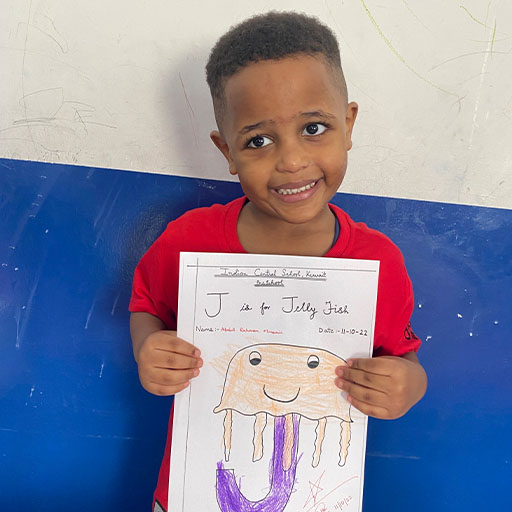 Indian Central School, Kuwait
Preschool
J is for Jelly Fish
Name:- Abdul Rahman Date :- 11-10-22
11/10/22